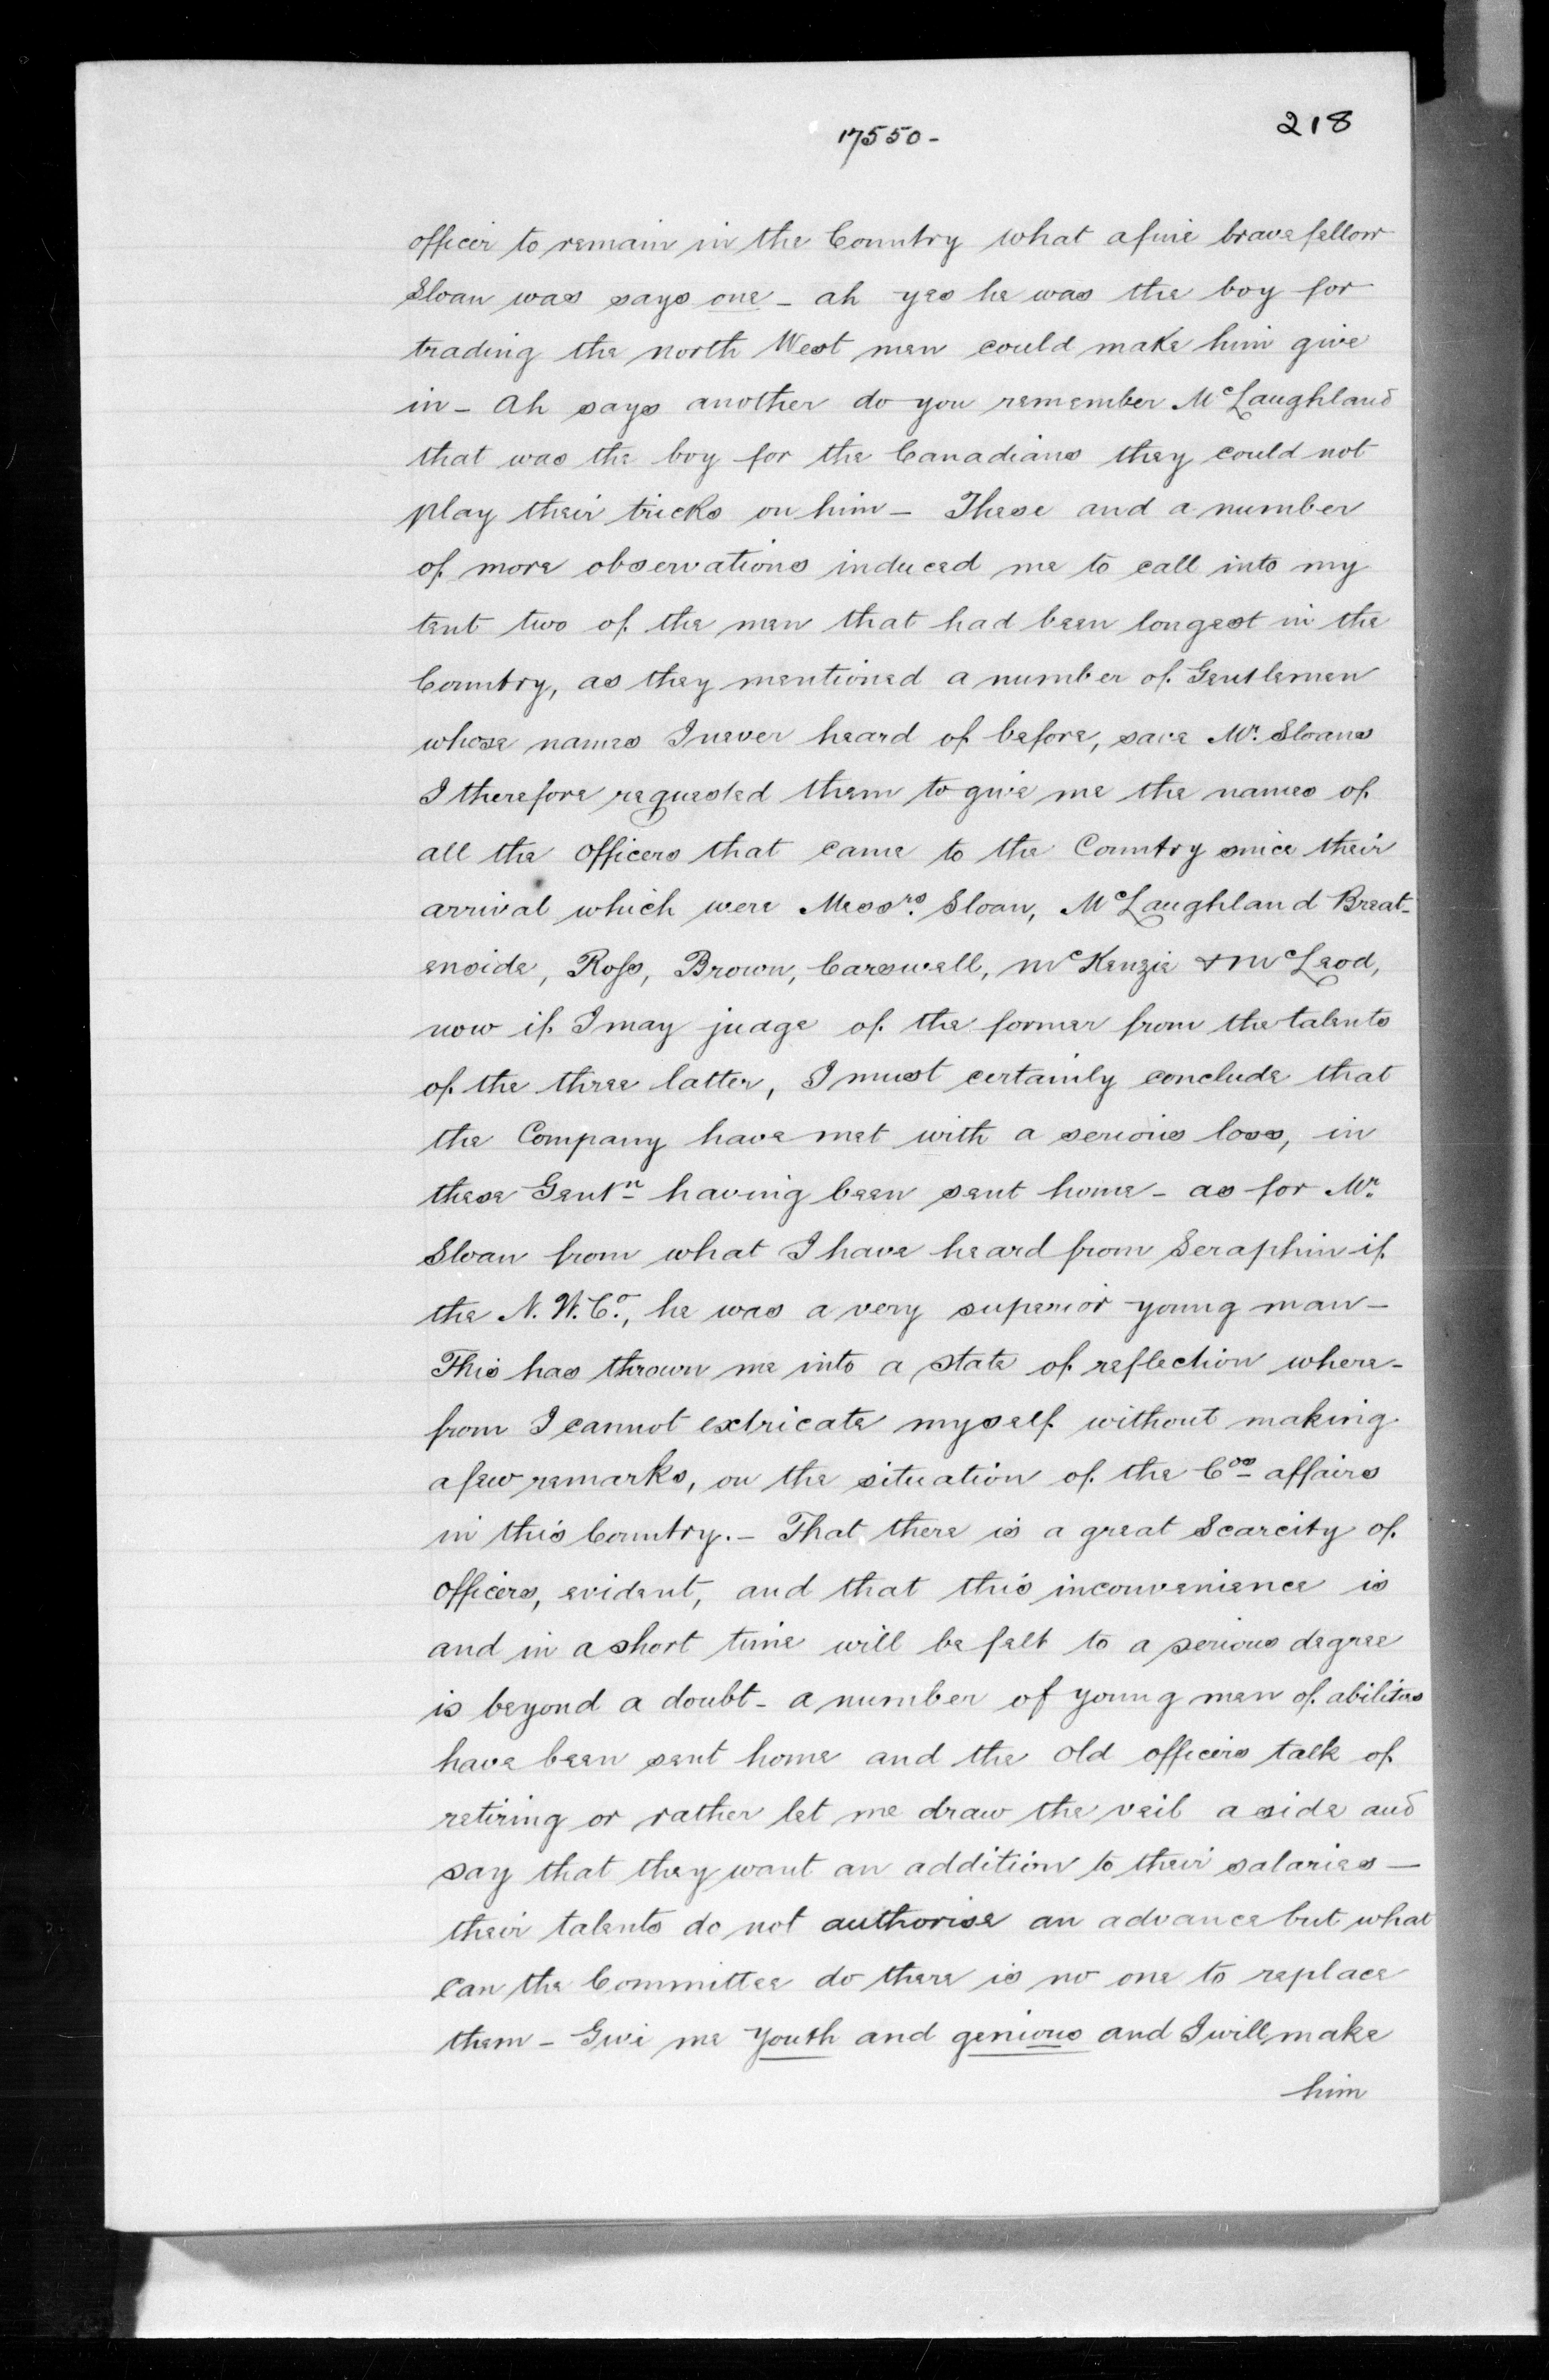 218
17550-
officer to remain in the Country what a fine brave fellow
Sloan was says one - ah yes he was the boy for
trading the north West men could make him give
in - Ah says another do you remember McLaughland
that was the boy for the Canadians they could not
play their tricks on him - These and a number
of more observations induced me to call into my
tent two of the men that had been longest in the
Country, as they mentioned a number of Gentlemen
whose names I never heard of before, save Mr. Sloans
I therefore requested them to give me the names of
all the officers that came to the Country since their
arrival which were Messrs. Sloan, McLaughland Breat-
enside, Ross, Brown, Carswell, McKenzie & McLeod,
now if I may judge of the former from the talents
of the three latter, I must certainly conclude that
the Company have met with a serious loss, in
these Gentn having been sent home - as for Mr.
Sloan from what I have heard from Seraphin if
the N. W. Co., he was a very superior young man -
This has thrown me into a state of reflection where-
from I cannot extricate myself without making
a few remarks, on the situation of the Cos affairs
in this Country. - That there is a great Scarcity of
officers, evident, and that this inconvenience is
and in a short time will be felt to a serious degree
is beyond a doubt - a number of young men of abilities
have been sent home and the old officers talk of
retiring or rather let me draw the veil aside and
say that they want an addition to their salaries -
their talents do not authorise an advance but what
can the Committee do there is no one to replace
them - Give me Youth and genious and I will make
him